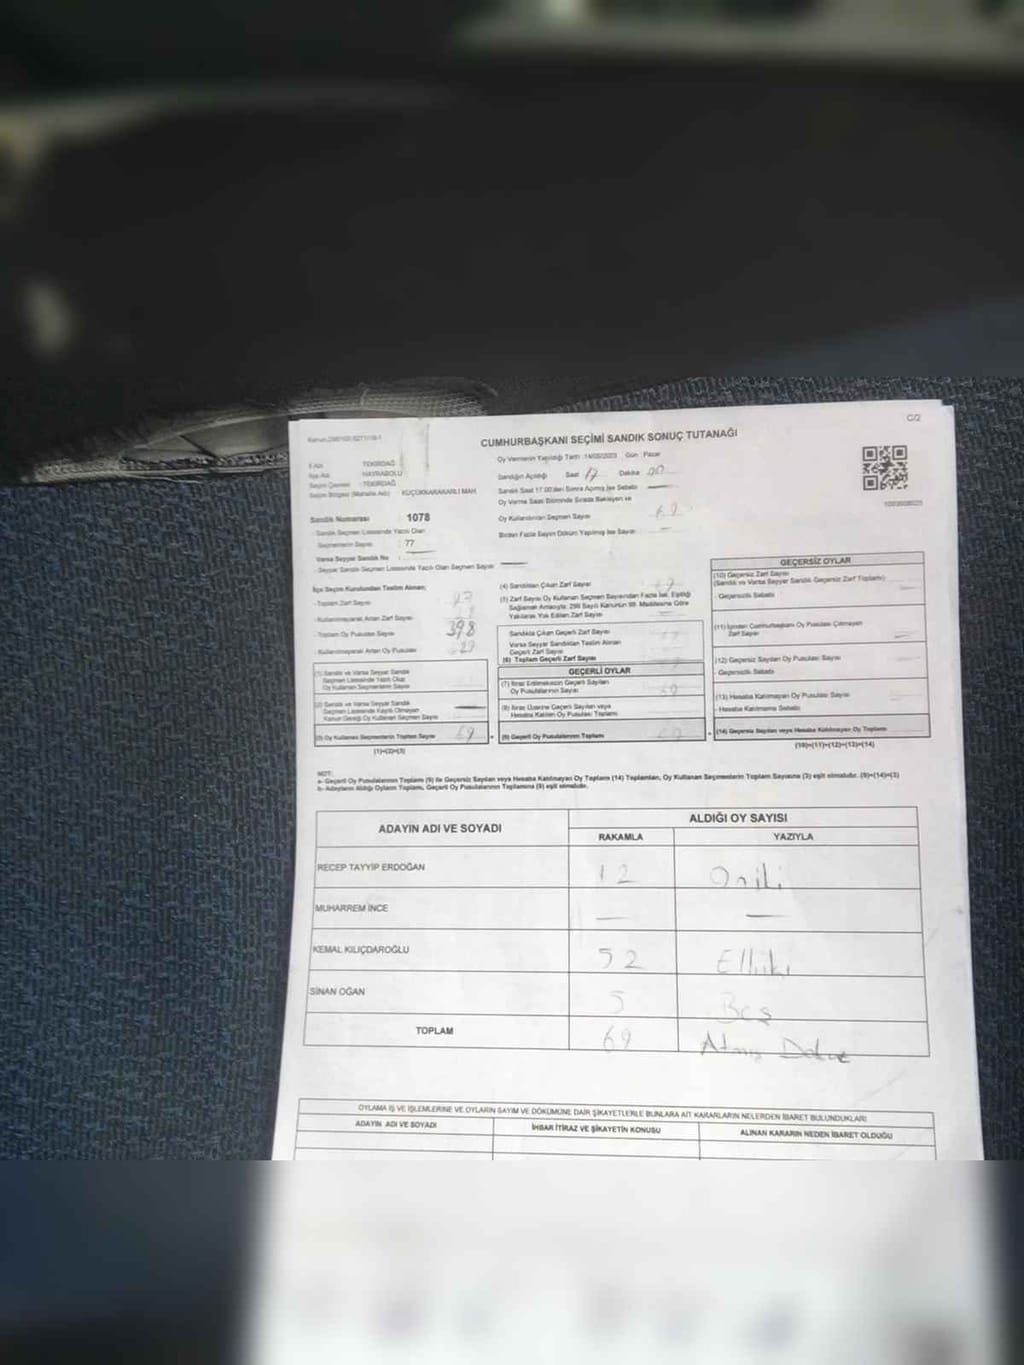 C/2
CUMHURBAŞKANI SEÇİMİ SANDIK SONUÇ TUTANAĞI
İl Adı : TEKİRDAĞ
İlçe Adı : HAYRABOLU
Seçim Çevresi : TEKİRDAĞ
Seçim Bölgesi (Mahalle Adı) : KÜÇÜKKARAKARLI MAH
Sandık Numarası : 1078
Sandık Seçmen Listesinde Yazılı Olan
Seçmenlerin Sayısı : 77
Varsa Seyyar Sandık No :
- Seyyar Sandık Seçmen Listesinde Yazılı Olan Seçmen Sayısı
Oy Vermenin Yapıldığı Tarih : 14/05/2023 , Gün : Pazar
Sandığın Açıldığı Saat 17 Dakika 00
Sandık Saat 17.00'den Sonra Açılmış İse Sebebi
Oy Verme Saati Bitiminde Sırada Bekleyen ve
Oy Kullandırılan Seçmen Sayısı 69
Birden Fazla Sayım Döküm Yapılmış İse Sayısı
İlçe Seçim Kurulundan Teslim Alınan;
- Toplam Zarf Sayısı
- Kullanılmayarak Artan Zarf Sayısı
- Toplam Oy Pusulası Sayısı 398
- Kullanılmayarak Artan Oy Pusulası
(1) Sandık ve Varsa Seyyar Sandık
Seçmen Listesinde Yazılı Olup
Oy Kullanan Seçmenlerin Sayısı
(2) Sandık ve Varsa Seyyar Sandık
Seçmen Listesinde Kayıtlı Olmayan
Kanun Gereği Oy Kullanan Seçmen Sayısı
(3) Oy Kullanan Seçmenlerin Toplam Sayısı 69
(1)+(2)=(3)
(4) Sandıktan Çıkan Zarf Sayısı 69
(5) Zarf Sayısı Oy Kullanan Seçmen Sayısından Fazla İse, Eşitliği
Sağlamak Amacıyla, 298 Sayılı Kanunun 98. Maddesine Göre
Yakılarak Yok Edilen Zarf Sayısı
Sandıkta Çıkan Geçerli Zarf Sayısı
Varsa Seyyar Sandıktan Teslim Alınan
Geçerli Zarf Sayısı
(6) Toplam Geçerli Zarf Sayısı
GEÇERLİ OYLAR
(7) İtiraz Edilmeksizin Geçerli Sayılan
Oy Pusulalarının Sayısı 69
(8) İtiraz Üzerine Geçerli Sayılan veya
Hesaba Katılan Oy Pusulası Toplamı
(9) Geçerli Oy Pusulalarının Toplamı 69
GEÇERSİZ OYLAR
(10) Geçersiz Zarf Sayısı
(Sandık ve Varsa Seyyar Sandık Geçersiz Zarf Toplamı)
- Geçersizlik Sebebi
(11) İçinden Cumhurbaşkanı Oy Pusulası Çıkmayan
Zarf Sayısı
(12) Geçersiz Sayılan Oy Pusulası Sayısı
- Geçersizlik Sebebi
(13) Hesaba Katılmayan Oy Pusulası Sayısı
- Hesaba Katılmama Sebebi
(14) Geçersiz Sayılan veya Hesaba Katılmayan Oy Toplamı
(10)+(11)+(12)+(13)=(14)
NOT:
a- Geçerli Oy Pusulalarının Toplamı (9) ile Geçersiz Sayılan veya Hesaba Katılmayan Oy Toplamı (14) Toplamları, Oy Kullanan Seçmenlerin Toplam Sayısına (3) eşit olmalıdır. (9)+(14)=(3)
b- Adayların Aldığı Oyların Toplamı, Geçerli Oy Pusulalarının Toplamına (9) eşit olmalıdır.
ADAYIN ADI VE SOYADI ALDIĞI OY SAYISI
RAKAMLA YAZIYLA
RECEP TAYYİP ERDOĞAN 12 Oniki
MUHARREM İNCE — —
KEMAL KILIÇDAROĞLU 52 Elliiki
SİNAN OĞAN 5 Beş
TOPLAM 69 Atmış Dokuz
OYLAMA İŞ VE İŞLEMLERİNE VE OYLARIN SAYIM VE DÖKÜMÜNE DAİR ŞİKAYETLERLE BUNLARA AİT KARARLARIN NELERDEN İBARET BULUNDUKLARI
ADAYIN ADI VE SOYADI İHBAR İTİRAZ VE ŞİKAYETİN KONUSU ALINAN KARARIN NEDEN İBARET OLDUĞU